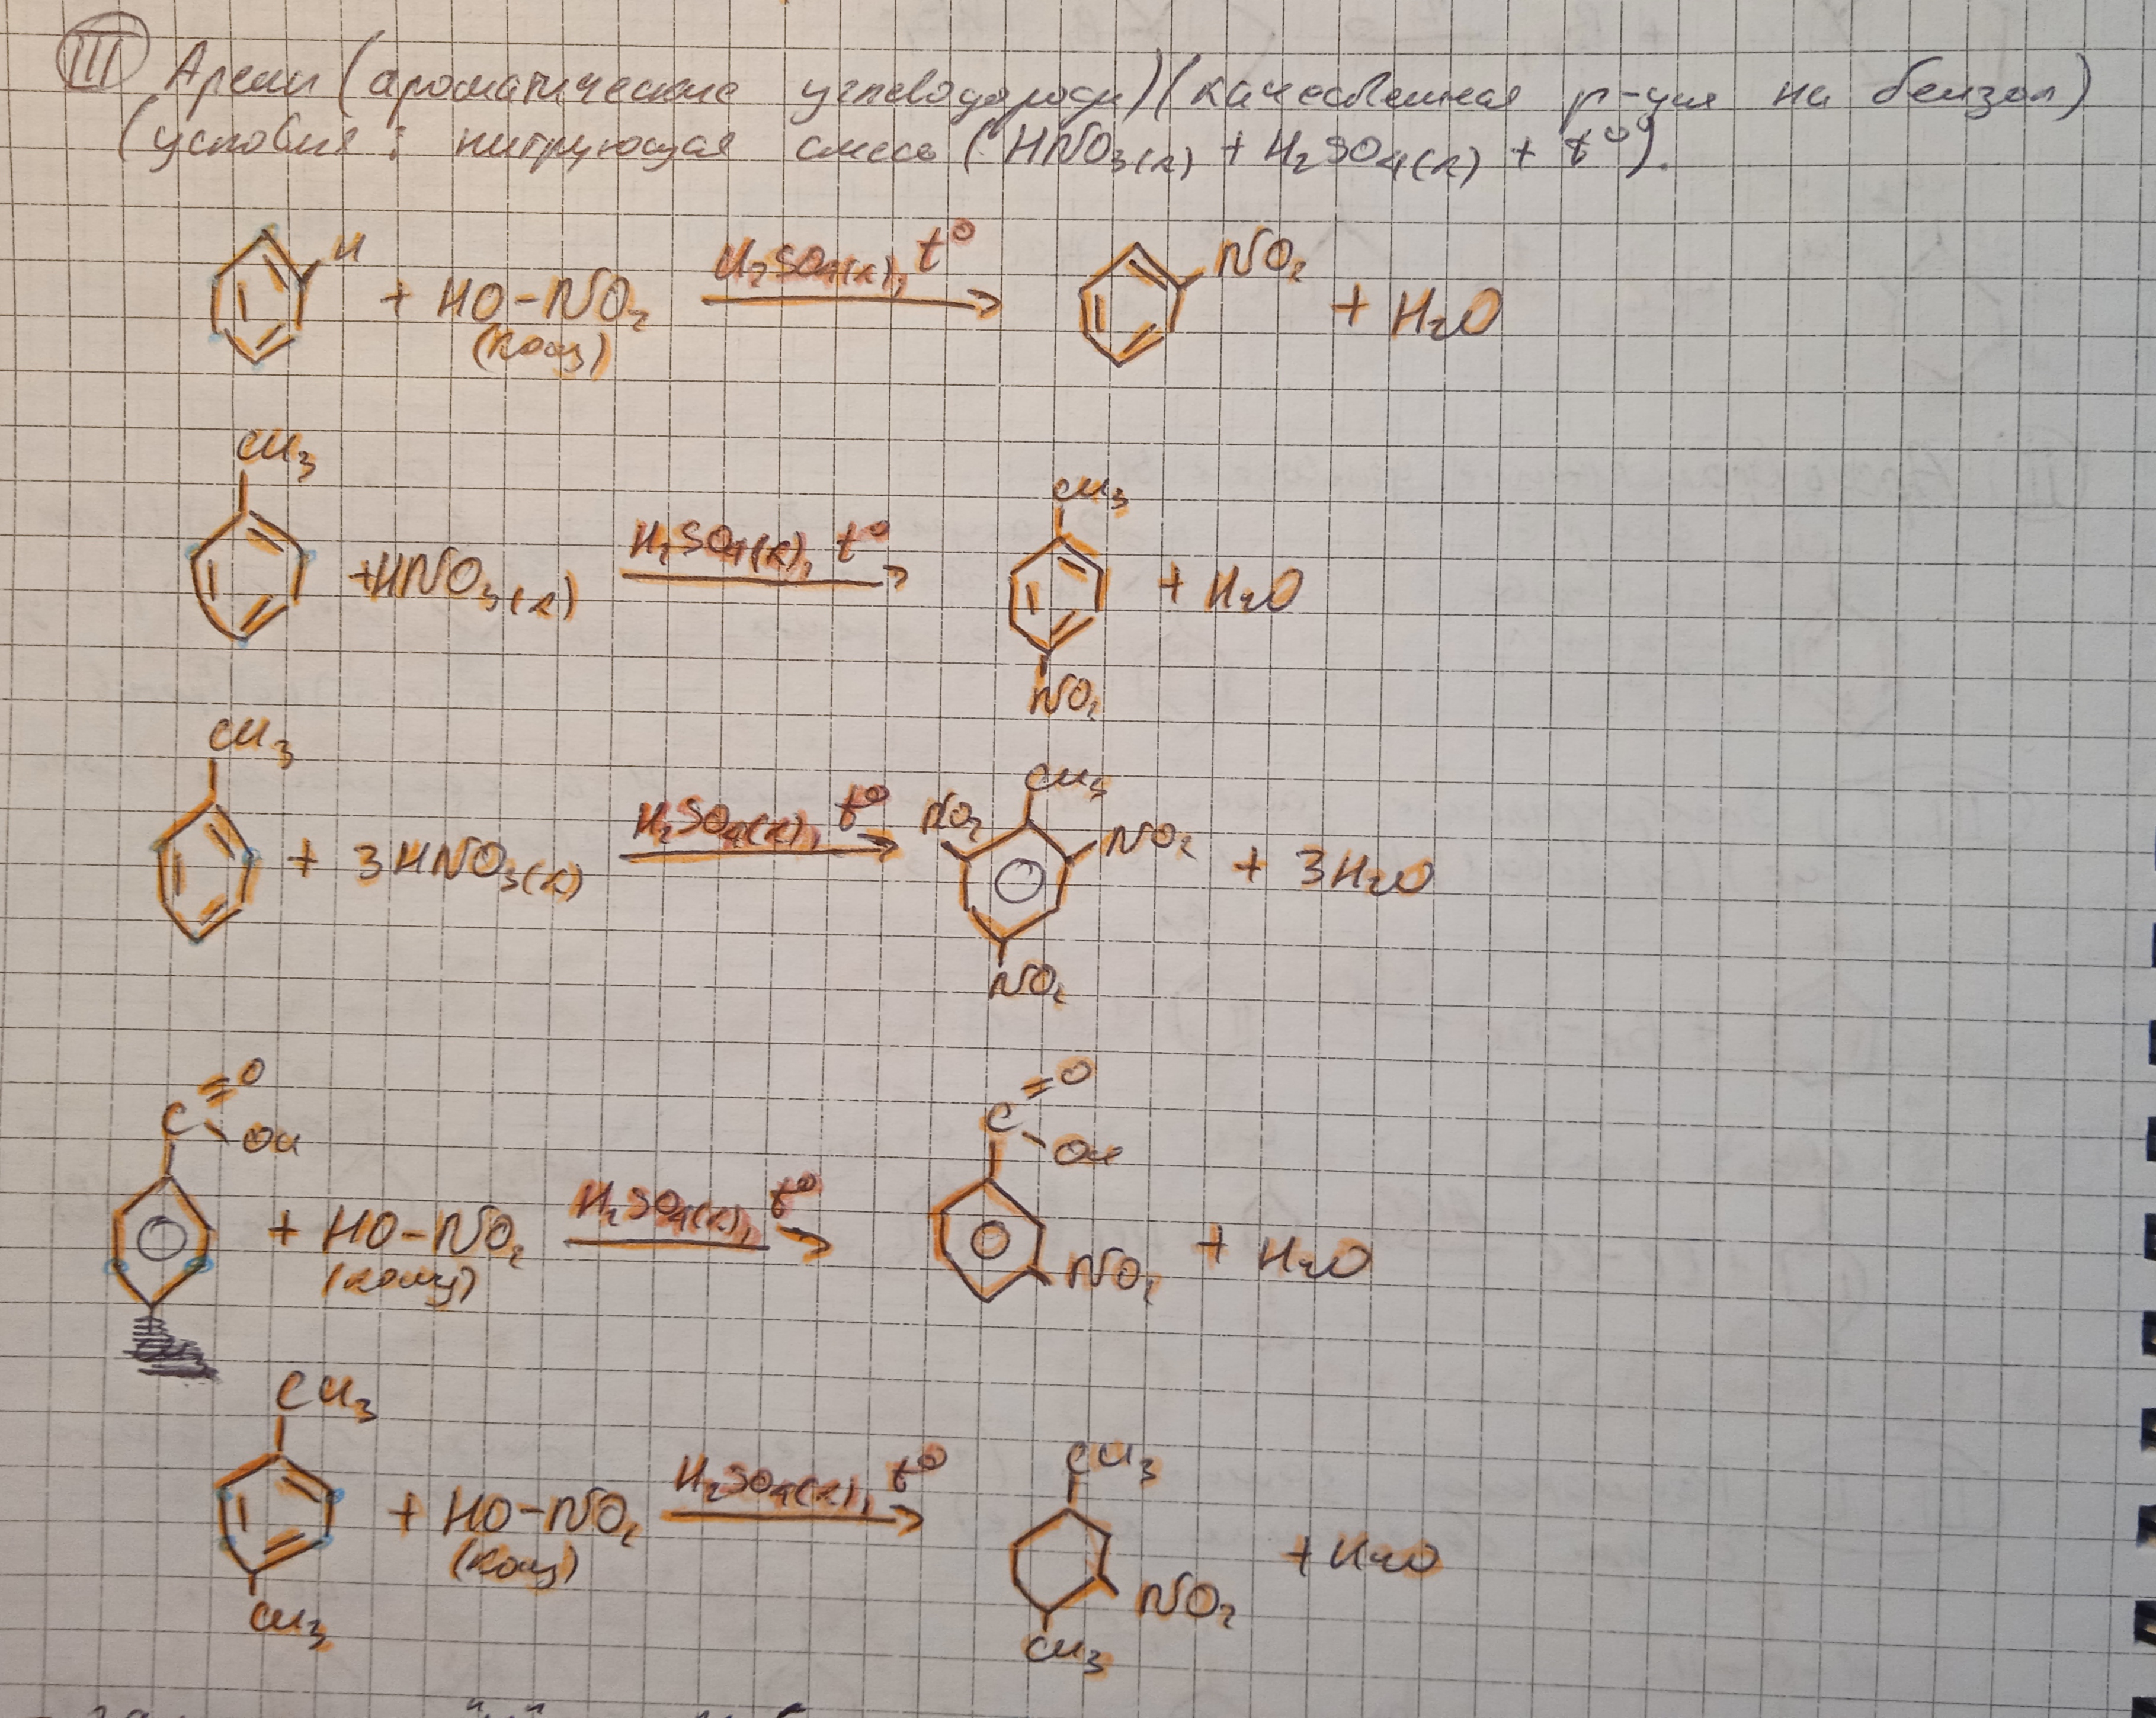 III Арены (ароматические углеводороды) (качественная р-ция на бензол)
(условия: нитрующая смесь (HNO₃(к) + H₂SO₄(к) + t°).
H + HO-NO₂ (конц) H₂SO₄(к), t° → NO₂ + H₂O
CH₃ + HNO₃(к) H₂SO₄(к), t° → CH₃ NO₂ + H₂O
CH₃ + 3HNO₃(к) H₂SO₄(к), t° → CH₃ NO₂ NO₂ NO₂ + 3H₂O
C =O OH + HO-NO₂ (конц) H₂SO₄(к), t° → C =O OH NO₂ + H₂O
CH₃ CH₃ + HO-NO₂ (конц) H₂SO₄(к), t° → CH₃ NO₂ CH₃ + H₂O